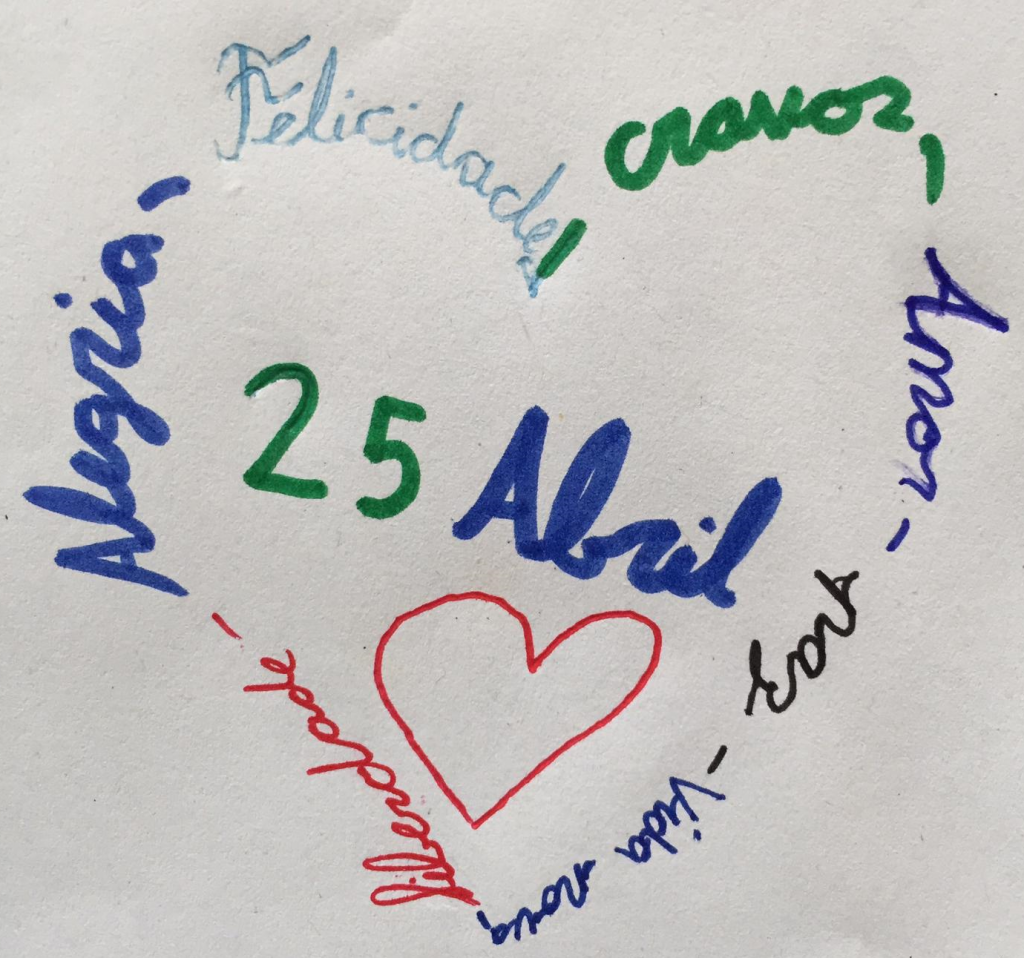 Felicidade,
cravos,
Amor -
Paz -
Vida nova,
liberdade -
Alegria,
25 Abril